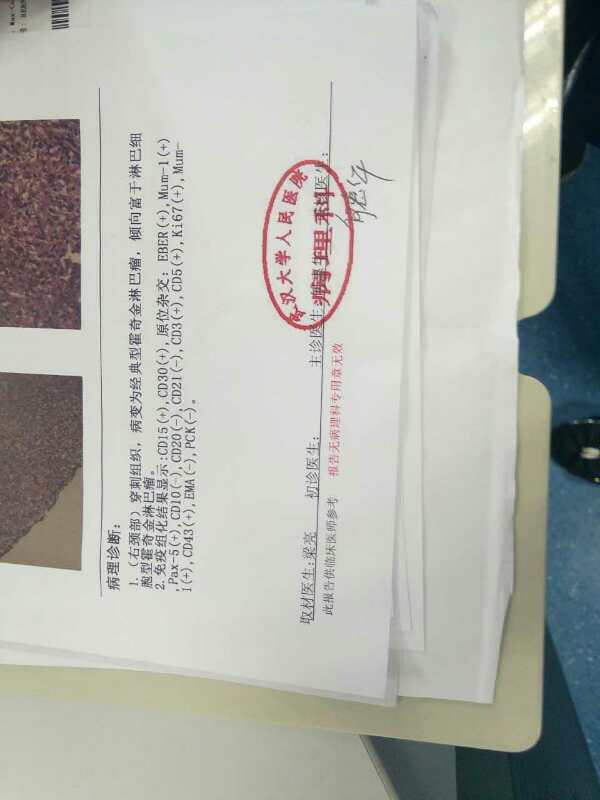 病理诊断:
1.（右颈部）穿刺组织，病变为经典型霍奇金淋巴瘤，倾向富于淋巴细
胞型霍奇金淋巴瘤。
2.免疫组化结果显示:CD15(+),CD30(+),原位杂交: EBER(+),Mum-1(+)
,Pax-5(+),CD10(-),CD20(-),CD21(-),CD3(+),CD5(+),Ki67(+),Mum-
1(+),CD43(+),EMA(-),PCK(-)。
取材医生:梁亮 初诊医生: 主诊医生: 医生:
武汉大学人民医院
病理科
此报告供临床医师参考 报告无病理科专用章无效